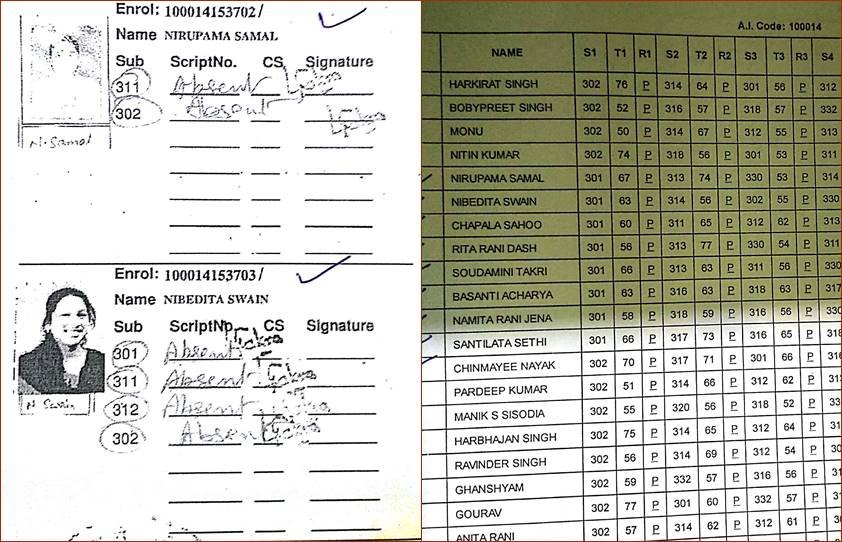 Enrol: 100014153702 /
Name NIRUPAMA SAMAL
Sub ScriptNo. CS Signature
311 Absent
302 Absent
N. Samal
Enrol: 100014153703 /
Name NIBEDITA SWAIN
Sub ScriptNo. CS Signature
301 Absent
311 Absent
312 Absent
302 Absent
N Swain
A.I. Code: 100014
NAME S1 T1 R1 S2 T2 R2 S3 T3 R3 S4
HARKIRAT SINGH 302 76 P 314 64 P 301 56 P 312
BOBYPREET SINGH 302 52 P 316 57 P 318 57 P 332
MONU 302 50 P 314 67 P 312 55 P 313
NITIN KUMAR 302 74 P 318 56 P 301 53 P 311
NIRUPAMA SAMAL 301 67 P 313 74 P 330 53 P 314
NIBEDITA SWAIN 301 63 P 314 56 P 302 55 P 330
CHAPALA SAHOO 301 60 P 311 65 P 312 62 P 313
RITA RANI DASH 301 56 P 313 77 P 330 54 P 311
SOUDAMINI TAKRI 301 66 P 313 63 P 311 56 P 330
BASANTI ACHARYA 301 63 P 316 63 P 318 63 P 317
NAMITA RANI JENA 301 58 P 318 59 P 316 56 P 330
SANTILATA SETHI 301 66 P 317 73 P 316 65 P 318
CHINMAYEE NAYAK 302 70 P 317 71 P 301 66 P 316
PARDEEP KUMAR 302 51 P 314 66 P 312 62 P
MANIK S SISODIA 302 55 P 320 56 P 318 52 P
HARBHAJAN SINGH 302 75 P 314 65 P 312 64 P
RAVINDER SINGH 302 56 P 314 69 P 312 54 P
GHANSHYAM 302 59 P 332 57 P 316 56 P
GOURAV 302 77 P 301 60 P 332 57 P
ANITA RANI 302 57 P 314 62 P 312 61 P